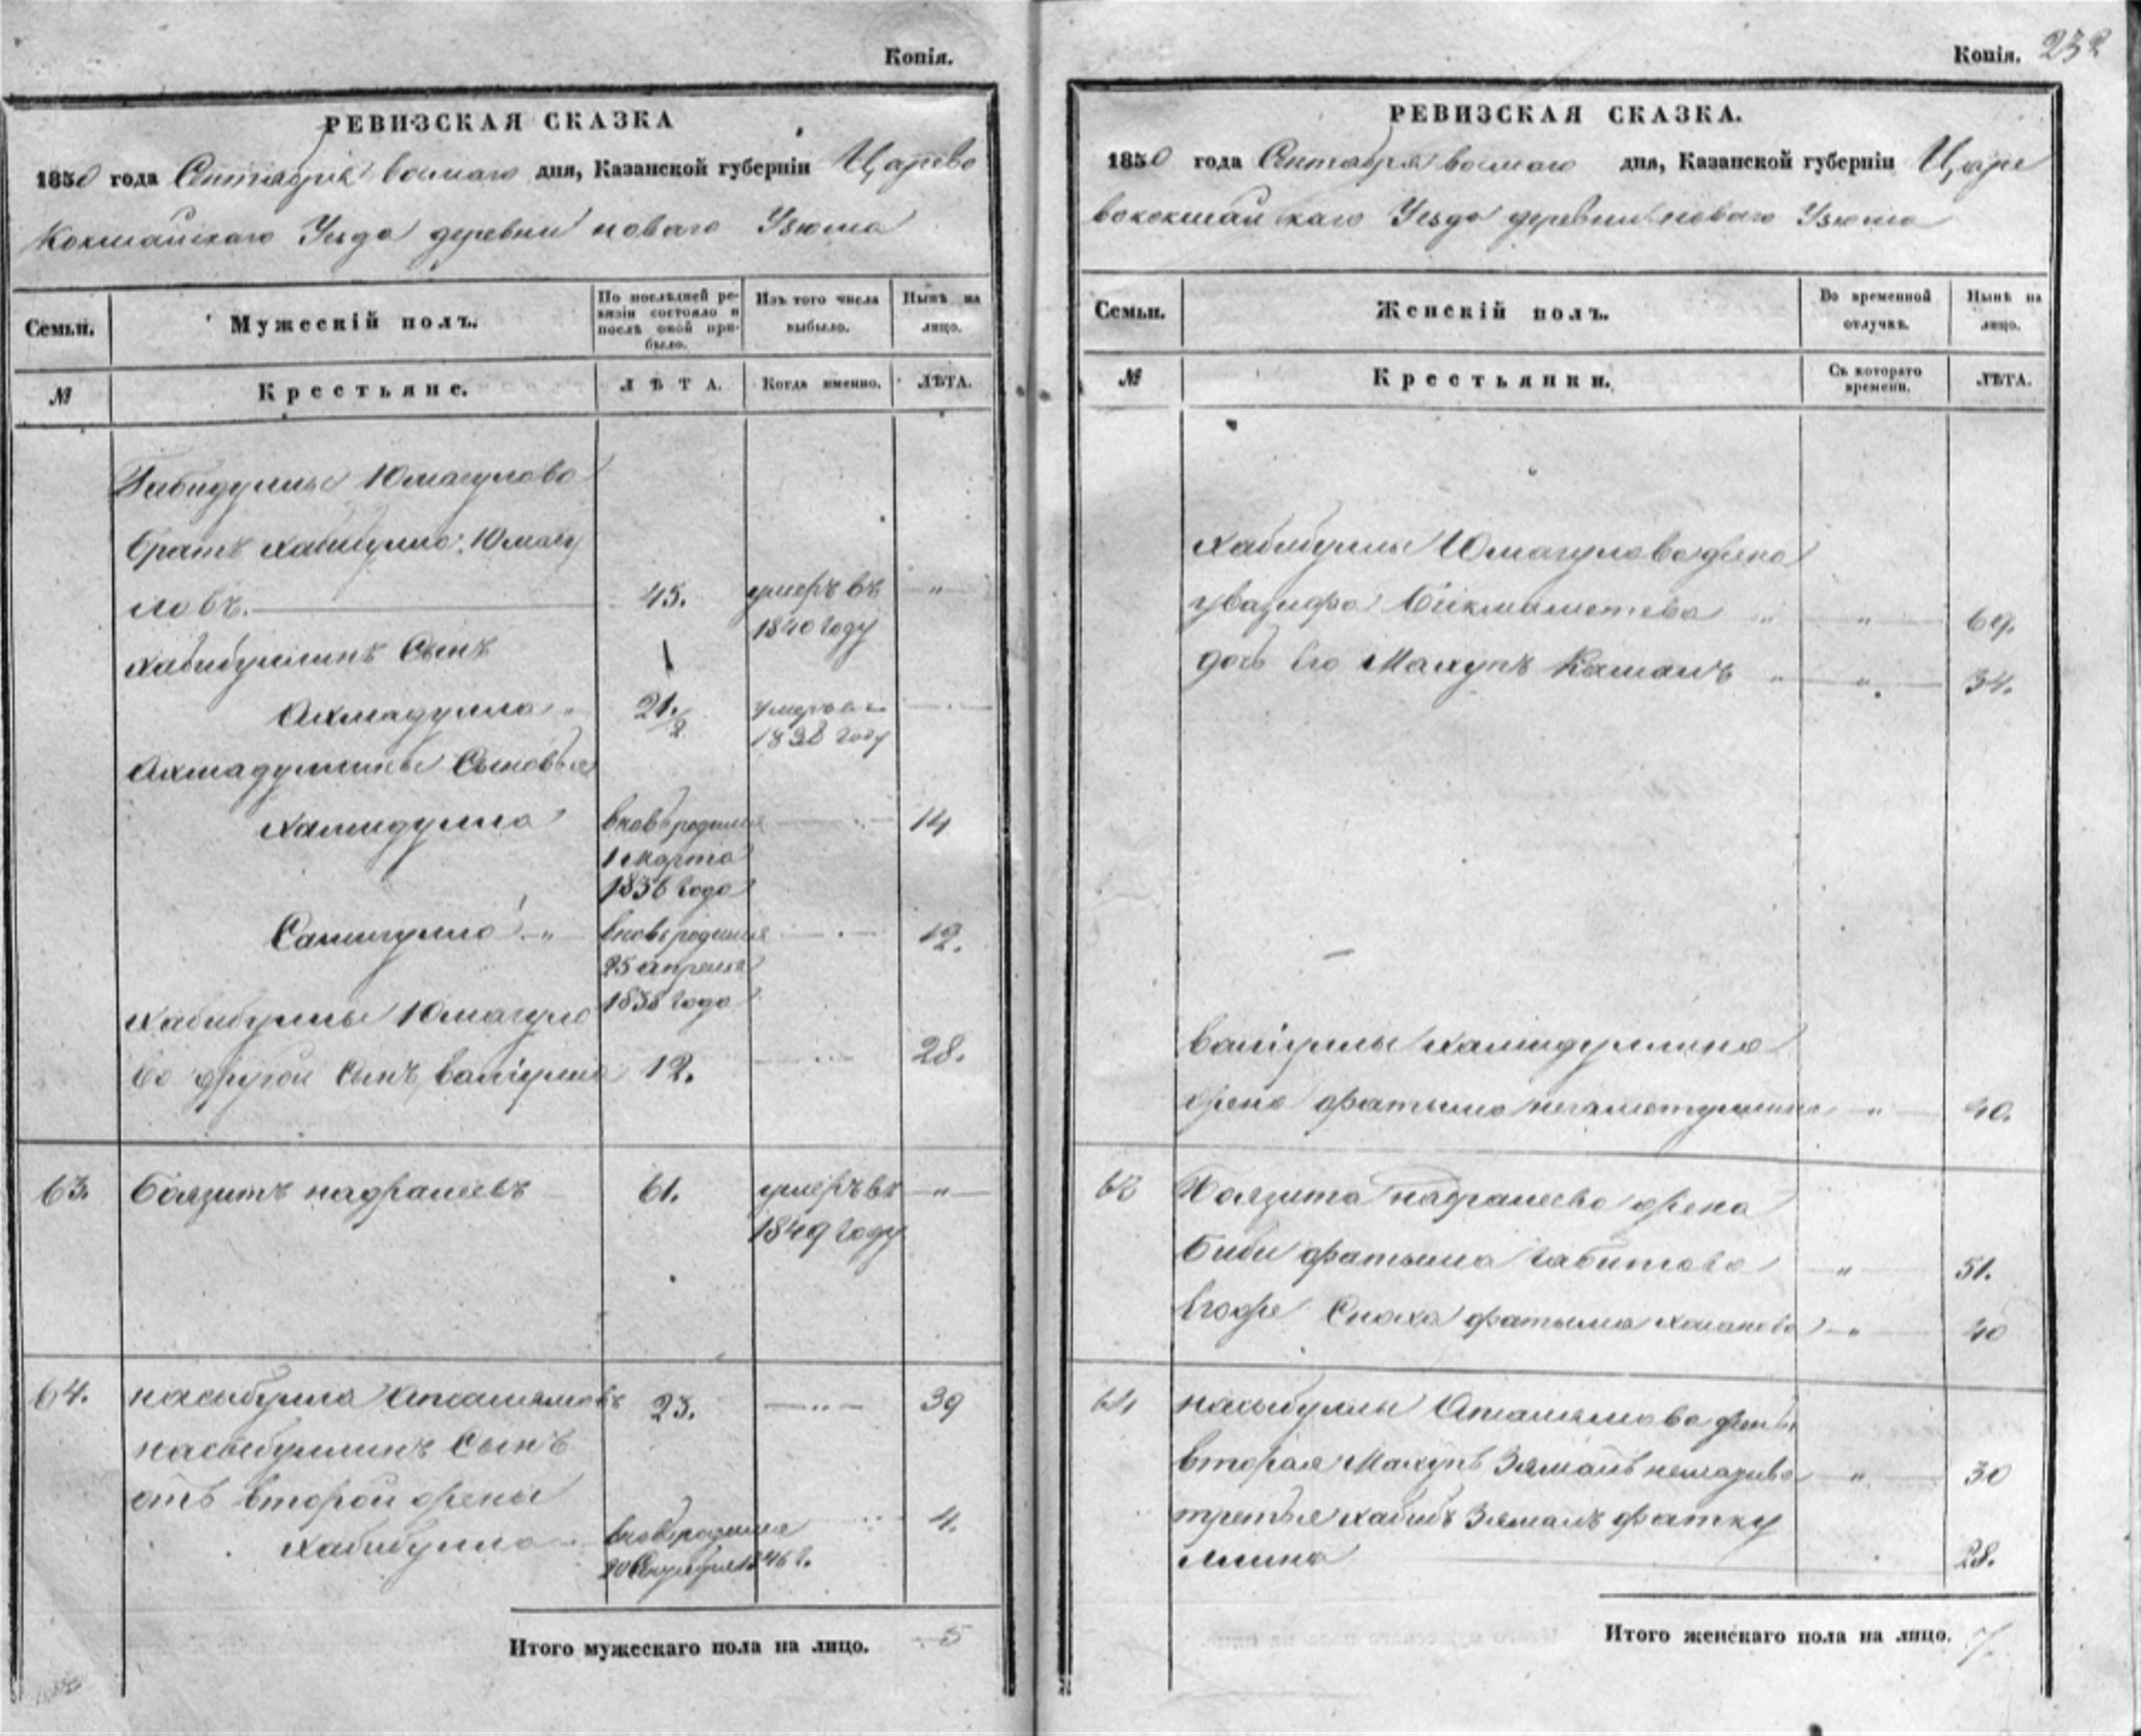 Копія.
РЕВИЗСКАЯ СКАЗКА
1850 года Сентября восмаго дня, Казанской губерніи Царево
Кокшайскаго Уезда деревни новаго Узюма
Семьи.
Мужескій полъ.
По послѣдней ре-
визіи состояло и
послѣ оной при-
было.
Изъ того числа
выбыло.
Нынѣ на
лицо.
№
Крестьяне.
ЛѢТА.
Когда именно.
ЛѢТА.
Габидуллы Юмагулова
братъ хабибулла Юмагу
ловъ. 45. умеръ въ "
1840 году
хабибуллинъ Сынъ
Ахмадулла 21. умеръ въ
1838 году
Ахмадуллины Сыновья
Хамидулла вновь родился 14
1 марта
1836 года
вновь родился 12.
25 апреля
1838 года
хабибуллы Юмагуло
ва другой Сынъ валіулла 12. 28.
63. баязитъ надралеевъ 61. умеръ въ "
1849 году
64. насыбулла 23. 39
насыбуллинъ Сынъ
отъ второй жены
хабибулла вновь родился 4.
1846 г.
Итого мужескаго пола на лицо. 5
Копія. 232
РЕВИЗСКАЯ СКАЗКА.
1850 года Сентября восмаго дня, Казанской губерніи Царе
вококшайскаго Уезда деревни новаго Узюма
Семьи.
Женскій полъ.
Во временной
отлучкѣ.
Нынѣ на
лицо.
№
Крестьянки.
Съ котораго
времени.
ЛѢТА.
хабибуллы Юмагулова жена
бикмаметева " " 69.
дочь его Махупъ Камалъ " " 34.
валіуллы хамидуллина
жена фатыма " 40.
63 баязита надралеева жена
биби фатыма габитова " 51.
Сноха фатыма " 40
64 насыбуллы жены
вторая Махупъ Зямалъ " 30
третья хабибъ Зямалъ фатку
ллина 28.
Итого женскаго пола на лицо. 7.